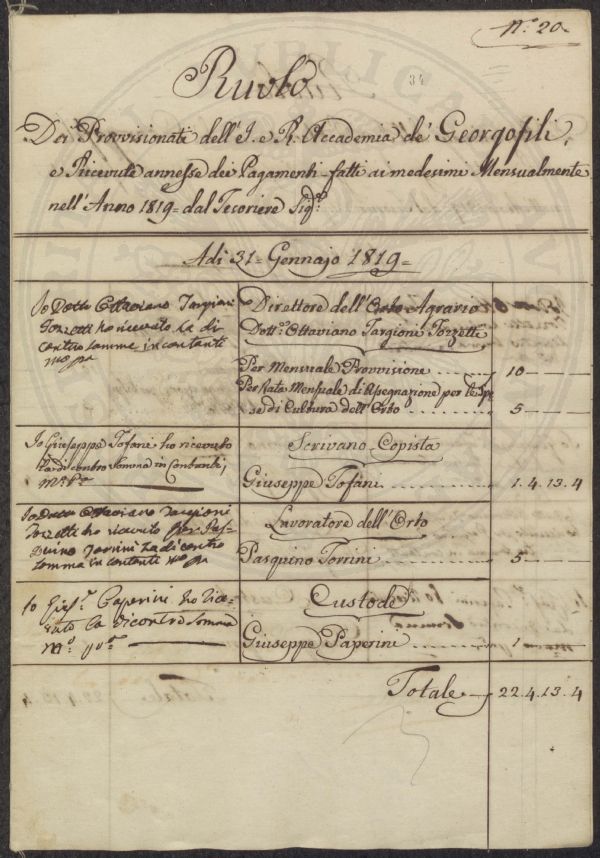 N.º 20
34
Ruolo
Dei Provvisionati dell'I. e R. Accademia de' Georgofili,
e Ricevute annesse dei Pagamenti fatti ai medesimi Mensualmente
nell'Anno 1819= dal Tesoriere Sig.ʳ
Adi 31= Gennajo 1819=
Io Dottʳ Ottaviano Targioni
Tozzetti ho ricevuto la di
contro somma in contanti
mº pª
Direttore dell'Orto Agrario
Dottʳ. Ottaviano Targioni Tozzetti
Per Mensuale Provvisione 10 —
Per Rata Mensuale di Assegnazione per le Spe
se di Cultura dell'Orto 5 —
Io Giuseppe Tofani ho ricevuto
la di contro Somma in Contanti,
Mº Pº
Scrivano Copista
Giuseppe Tofani 1. 4. 13. 4
Io Dottʳ Ottaviano Targioni
Tozzetti ho ricevuto per Pas-
quino Torrini la di contro
somma in contanti mº pª
Lavoratore dell'Orto
Pasquino Torrini 5 —
Io Gius.ᵉ Paperini ho rice-
vuto la dicontro Somma
Mº.
Custode
Giuseppe Paperini 1 —
Totale 22. 4. 13. 4